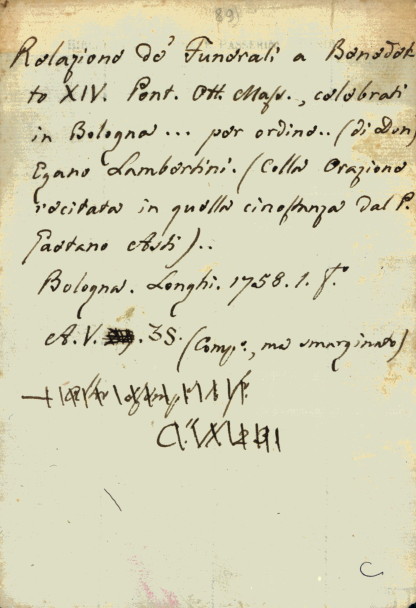 89)
Relazione de' Funerali a Benedet-
to XIV. Pont. Ott. Mass., celebrati
in Bologna ... per ordine.. (di Don
Egano Lambertini. (Colla Orazione
recitata in quella circostanza dal P.
Gaetano Asti)..
Bologna. Longhi. 1758. 1. f.o
A. V. 35. (Comp.o, ma smarginato)